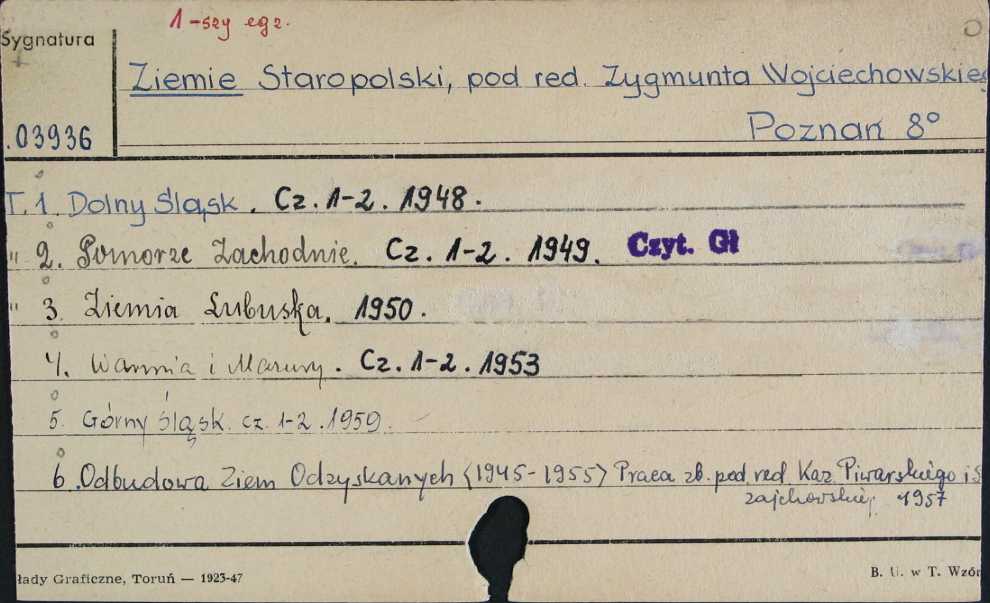 1-szy egz.
Sygnatura
Ziemie Staropolski, pod red. Zygmunta Wojciechowskieg
.03936
Poznań 8°
T. 1. Dolny Śląsk. Cz. 1-2. 1948.
" 2. Pomorze Zachodnie. Cz. 1-2. 1949. Czyt. Gł
" 3. Ziemia Lubuska. 1950.
4. Warmia i Mazury. Cz. 1-2. 1953
5. Górny Śląsk. cz. 1-2. 1959.
6. Odbudowa Ziem Odzyskanych (1945-1955) Praca zb. pod red. Kaz. Piwarskiego i S
zajchowskiej 1957
łady Graficzne, Toruń — 1923-47
B. U. w T. Wzór